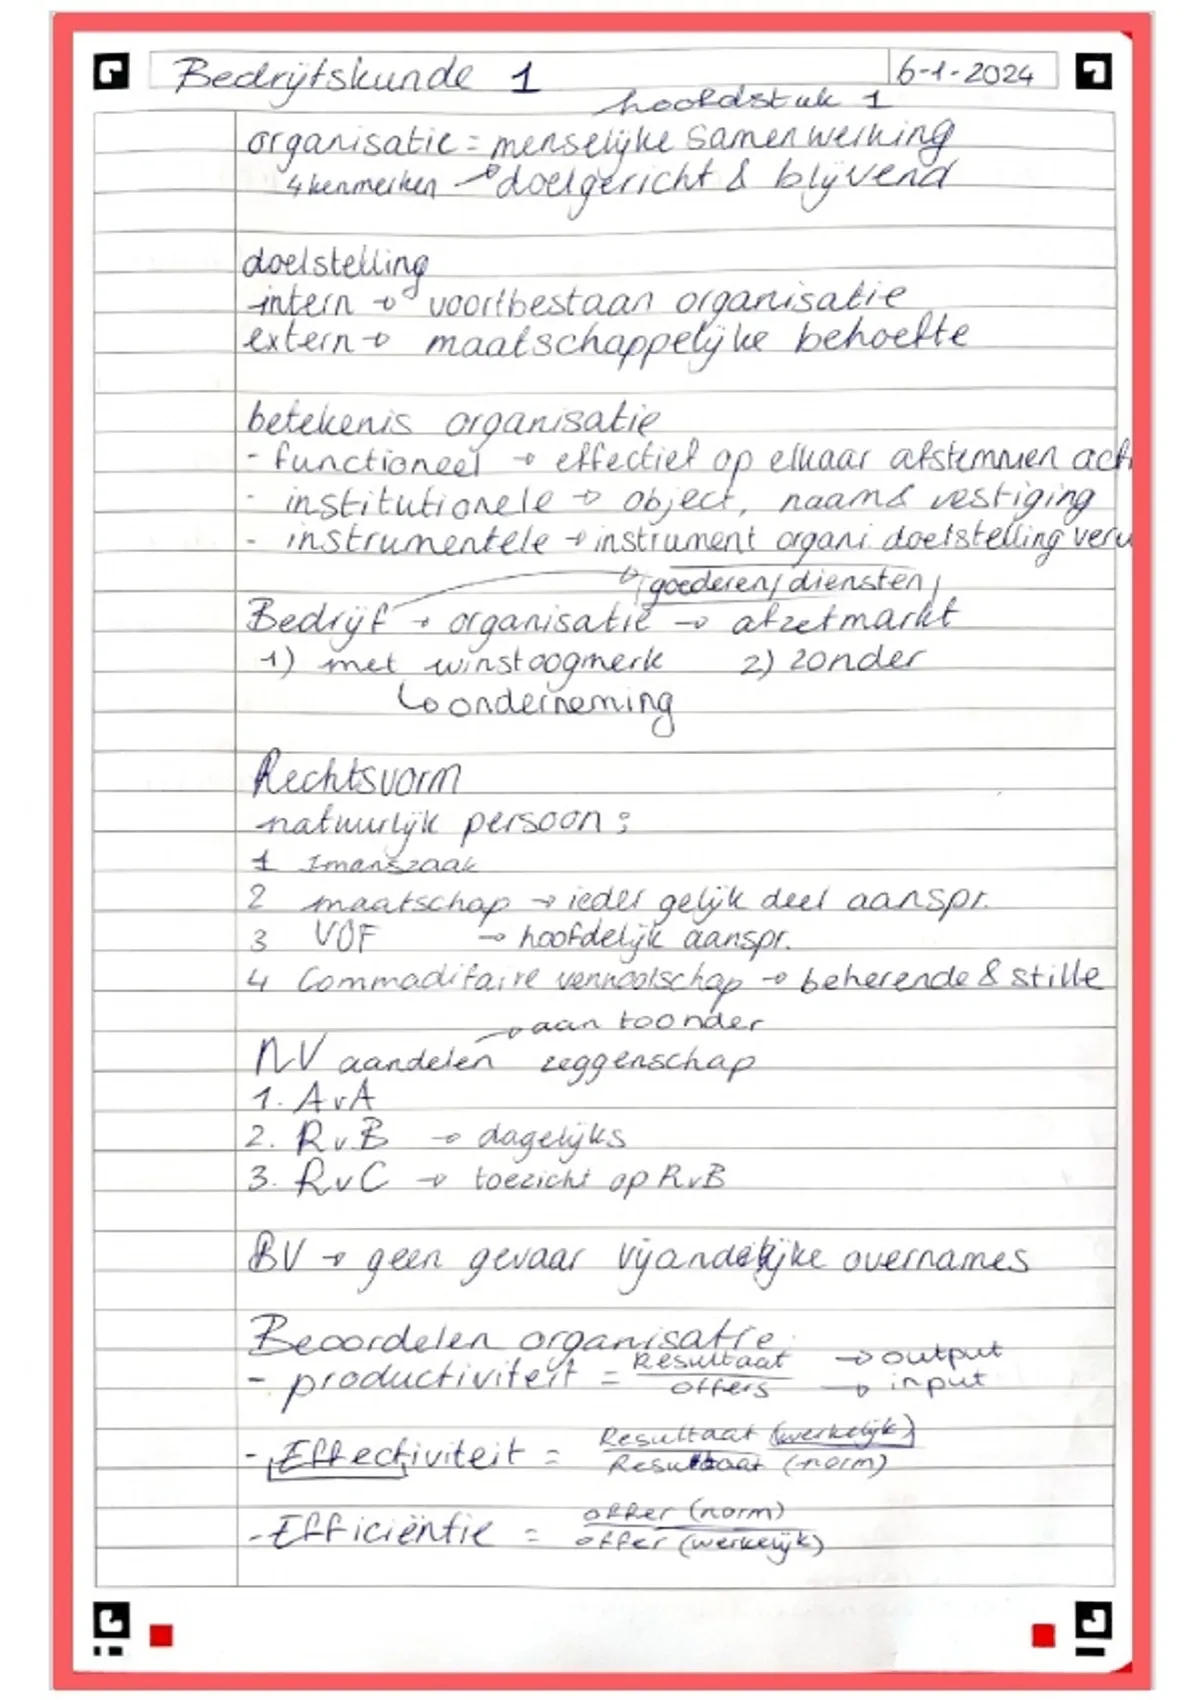 Bedrijfskunde 1
6-1-2024
hoofdstuk 1
organisatie = menselijke samenwerking
4 kenmerken → doelgericht & blijvend
doelstelling
intern → voortbestaan organisatie
extern → maatschappelijke behoefte
betekenis organisatie
- functioneel → effectief op elkaar afstemmen act
- institutionele → object, naam & vestiging
- instrumentele → instrument organi. doelstelling verw
↳ goederen/diensten
Bedrijf → organisatie → afzetmarkt
1) met winstoogmerk 2) zonder
↳ onderneming
Rechtsvorm
natuurlijk persoon:
1 1manszaak
2 maatschap → ieder gelijk deel aanspr.
3 VOF → hoofdelijk aanspr.
4 Commaditaire vennootschap → beherende & stille
→ aan toonder
NV aandelen zeggenschap
1. AvA
2. RvB → dagelijks
3. RvC → toezicht op RvB
BV → geen gevaar vijandelijke overnames
Beoordelen organisatie:
- productiviteit = Resultaat → output
offers → input
- Effectiviteit = Resultaat (werkelijk)
Resultaat (norm)
- Efficiëntie = offer (norm)
offer (werkelijk)